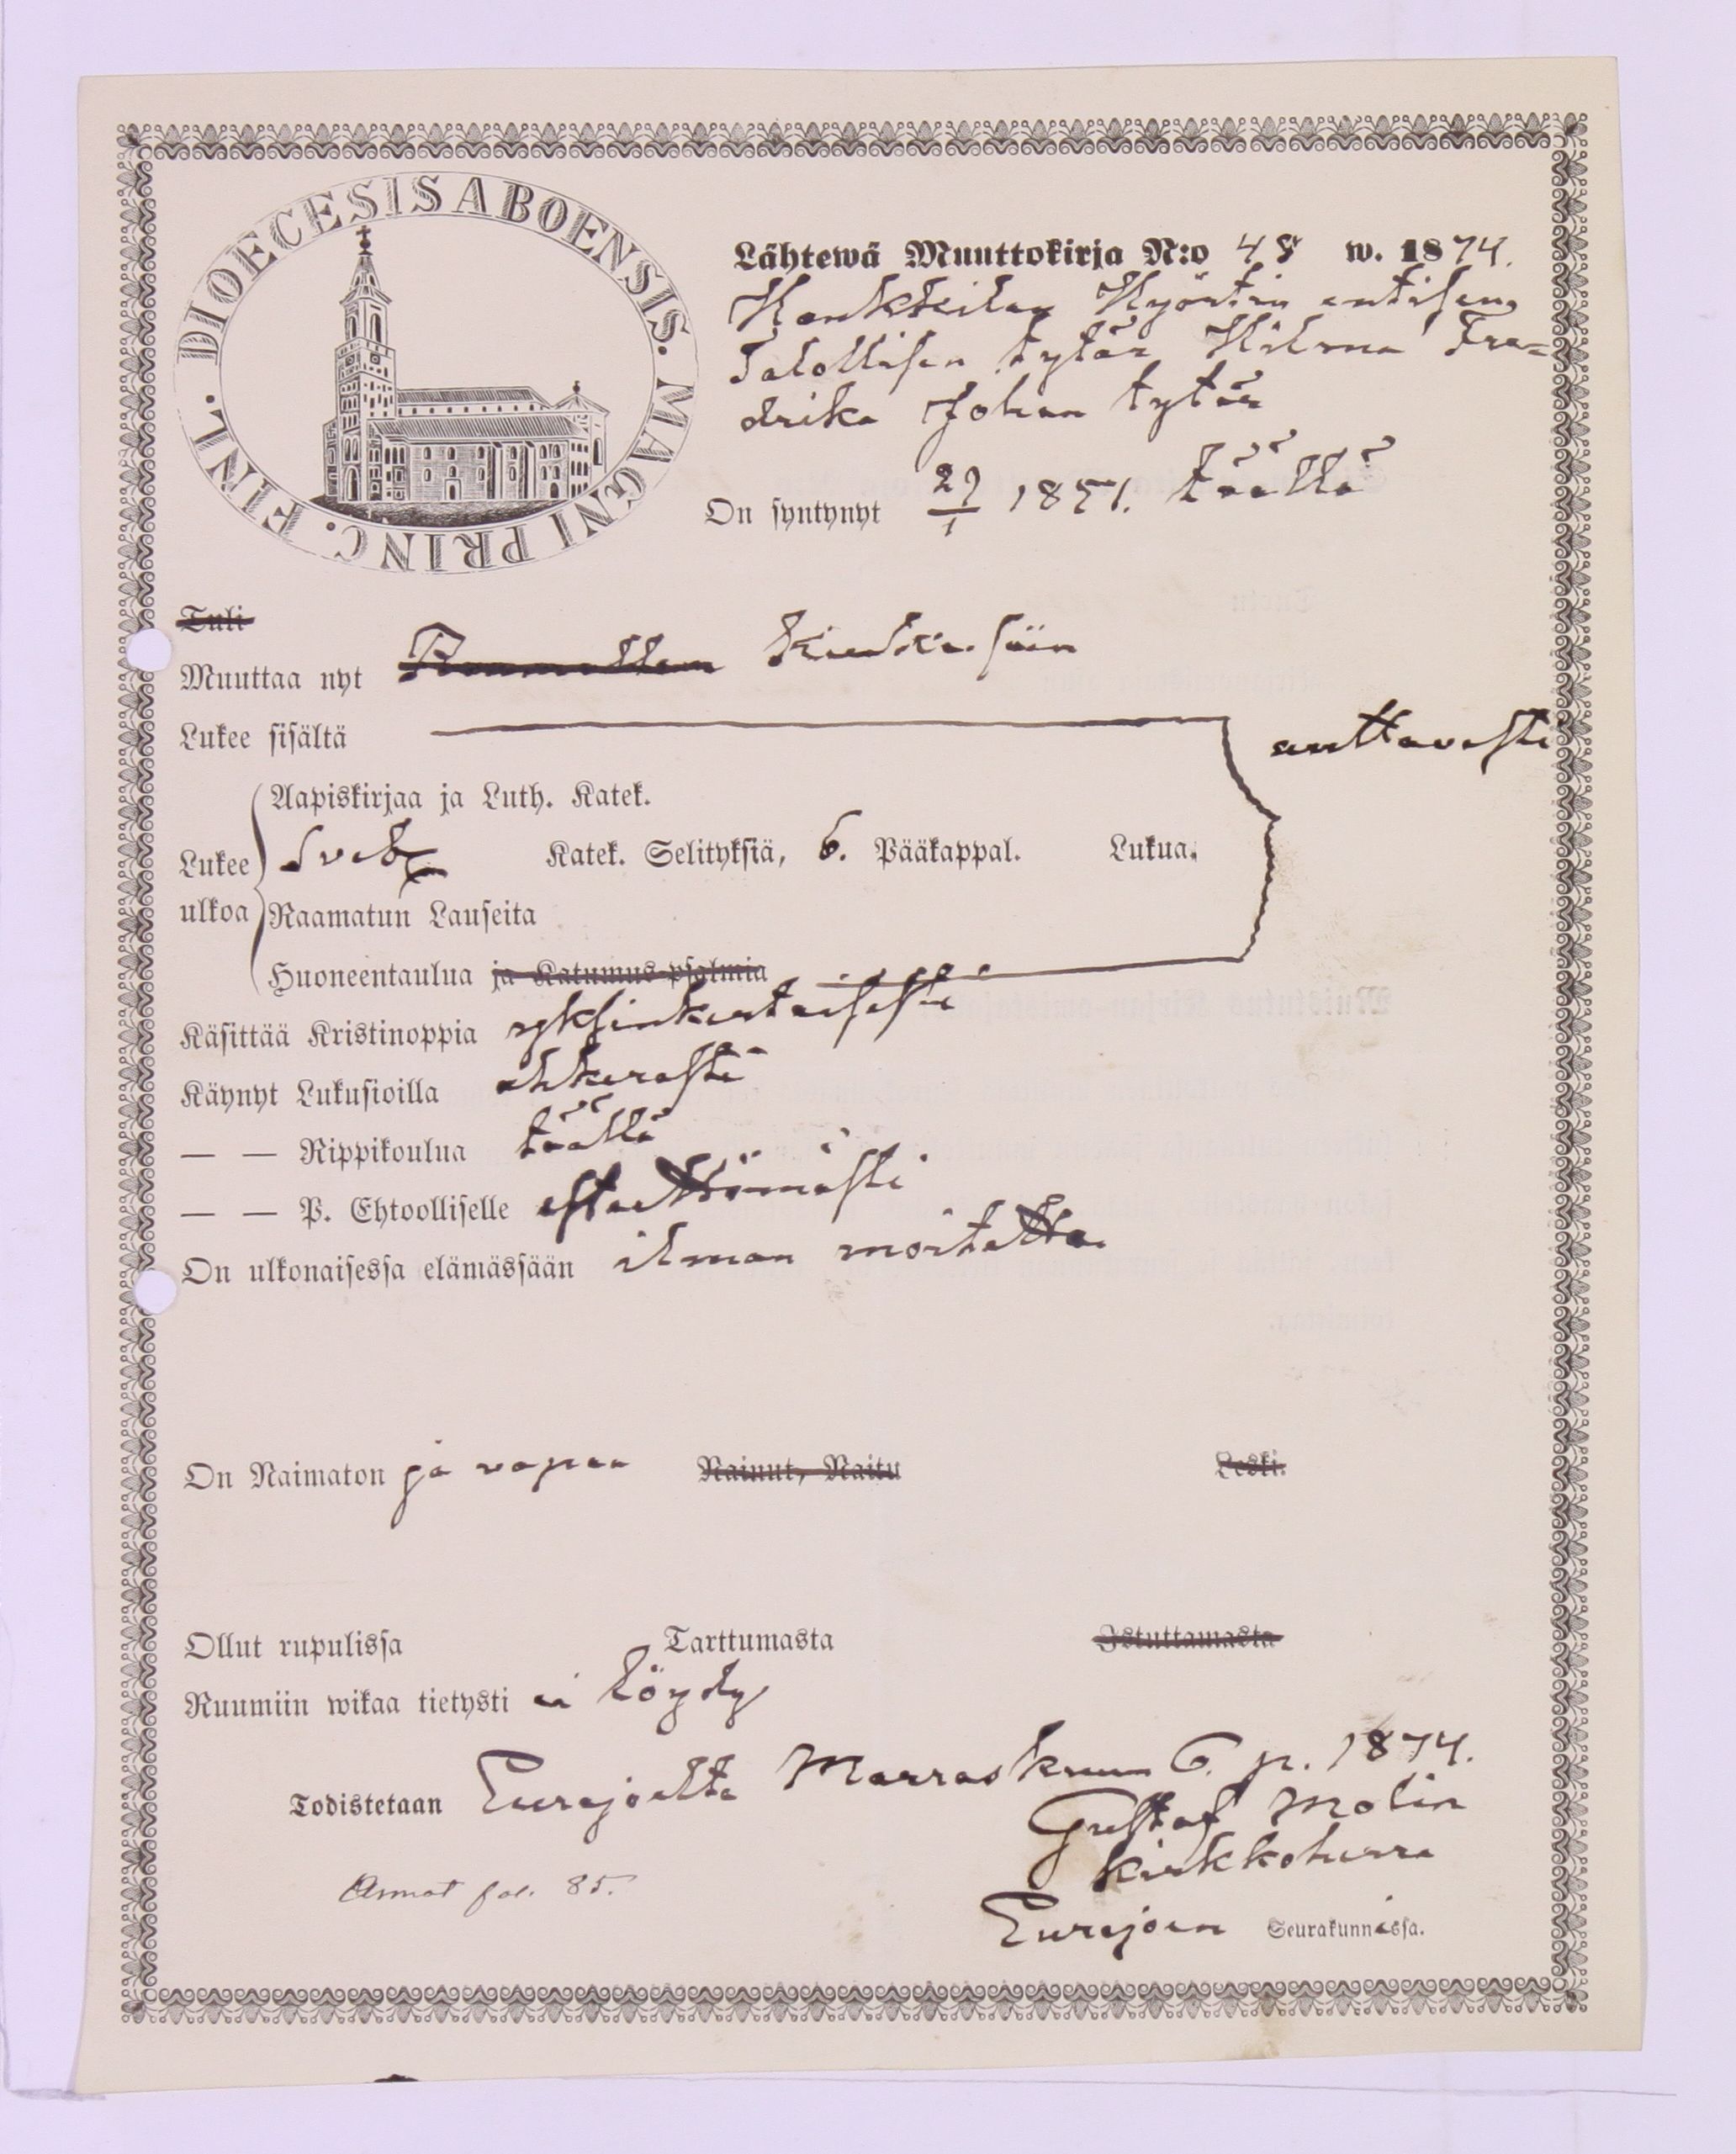 DIOECESIS ABOENSIS. MAGNI PRINC. FINL.
Lähtewä Muuttokirja N:o 48 w. 1874.
Hankkilan Hyörtin entisen
Talollisen tytär Hilma Fre=
drika Johan tytär
On syntynyt 27/1 1851. täällä
Tuli
Muuttaa nyt Raumallem Kiukaisiin
Lukee sisältä auttavasti
Aapiskirjaa ja Luth. Katek.
Lukee ulkoa Sveb. Katek. Selityksiä, 6. Pääkappal. Lukua.
Raamatun Lauseita
Huoneentaulua ja Katumus-psalmia
Käsittää Kristinoppia yksinkertaisesti
Käynyt Lukusioilla ahkerasti
— — Rippikoulua täällä
— — P. Ehtoolliselle estaettömästi
On ulkonaisessa elämässään ilman moitetta.
On Naimaton ja vapaa Nainut, Naitu Leski.
Ollut rupulissa Tarttumasta Istuttamasta
Ruumiin wikaa tietysti ei löydy
Todistetaan Eurajoelta Marraskuun 6. p. 1874.
Gustaf Molin
kirkkoherra
Annot fol. 85.
Eurajoen Seurakunnassa.